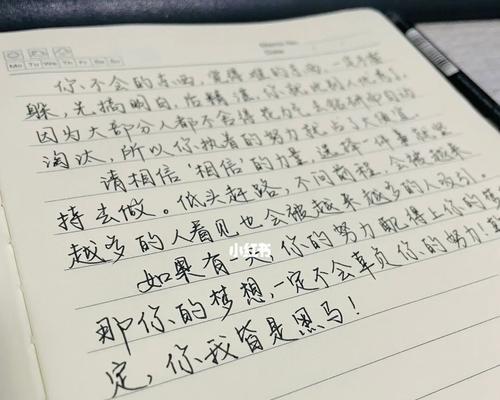 Mo Tu We Th Fr Sa Su
Memo No.
Date
你不会的东西，觉得难的东西，一定不能
躲，先搞明白，后精湛，你就比别人优秀了。
因为大部分人都不舍得花力气去钻研而自动
淘汰，所以你执着的努力就占了大便宜。
请相信‘相信’的力量，选择一件事就坚
持去做。低头赶路，不问前程，会被越来
越多的人看见也会被越来越多的人吸引。
如果有一天你的努力配得上你的梦
那你的梦想，一定不会辜负你的努力！
定，你我皆是黑马！
小红书